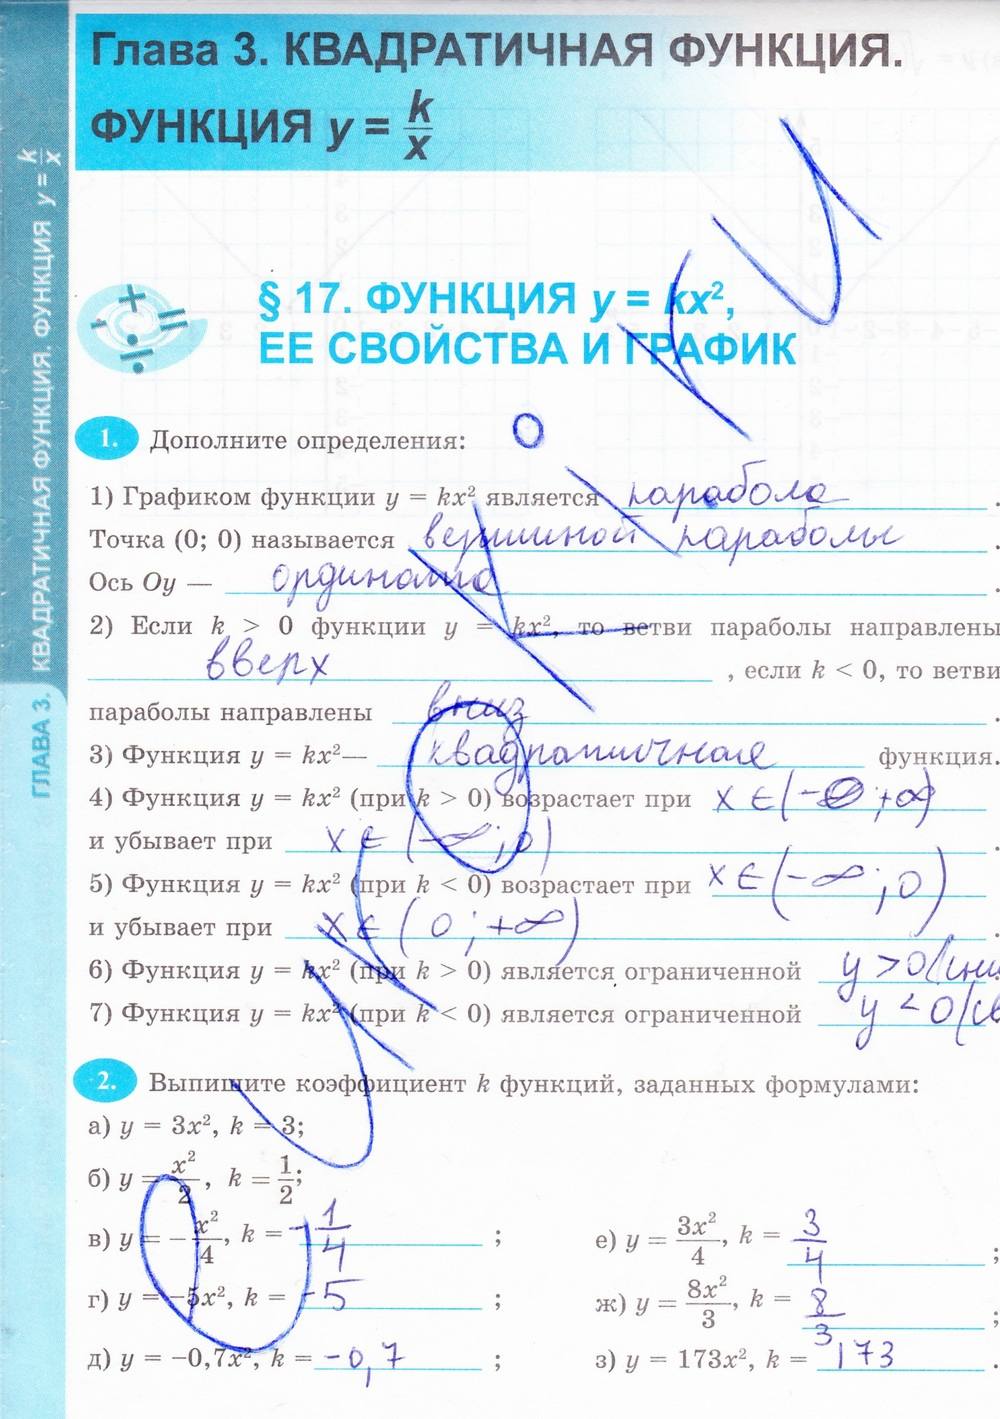 Глава 3. КВАДРАТИЧНАЯ ФУНКЦИЯ.
ФУНКЦИЯ y = k/x
ГЛАВА 3. КВАДРАТИЧНАЯ ФУНКЦИЯ. ФУНКЦИЯ y = k/x
§ 17. ФУНКЦИЯ y = kx²,
ЕЕ СВОЙСТВА И ГРАФИК
1. Дополните определения:
1) Графиком функции y = kx² является парабола.
Точка (0; 0) называется вершиной параболы.
Ось Oy — ордината.
2) Если k > 0 функции y = kx², то ветви параболы направлены
вверх, если k < 0, то ветви
параболы направлены вниз.
3) Функция y = kx²— квадратичная функция.
4) Функция y = kx² (при k > 0) возрастает при x ∈ (-0; +∞)
и убывает при x ∈ (-∞; 0).
5) Функция y = kx² (при k < 0) возрастает при x ∈ (-∞; 0)
и убывает при x ∈ (0; +∞).
6) Функция y = kx² (при k > 0) является ограниченной y > 0
7) Функция y = kx² (при k < 0) является ограниченной y < 0
2. Выпишите коэффициент k функций, заданных формулами:
а) y = 3x², k = 3;
б) y = x²/2, k = 1/2;
в) y = -x²/4, k = -1/4;
г) y = -5x², k = -5;
д) y = -0,7x², k = -0,7;
е) y = 3x²/4, k = 3/4;
ж) y = 8x²/3, k = 8/3;
з) y = 173x², k = 173.